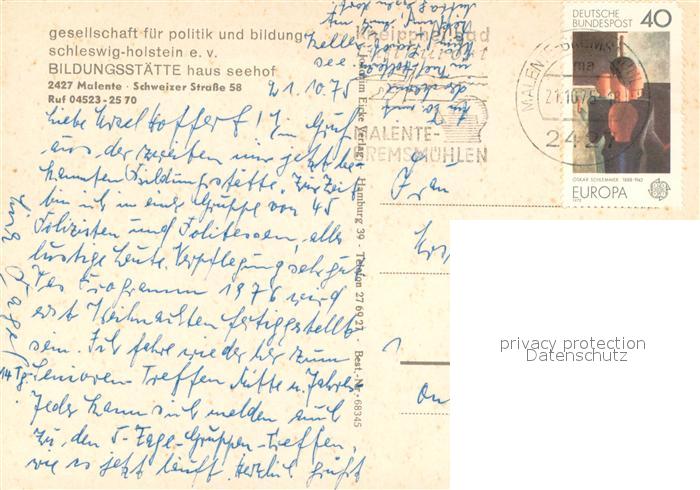 gesellschaft für politik und bildung
schleswig-holstein e. v.
BILDUNGSSTÄTTE haus seehof
2427 Malente · Schweizer Straße 58
Ruf 04523-25 70
21.10.75
Liebe
Ein Gruß
aus der zweiten mir jetzt be-
kannten Bildungsstätte. Zur Zeit
bin ich in einer Gruppe von 45
Polizisten und Politessen, alles
lustige Leute. Verpflegung sehr gut
Das Programm 1976 wird
erst Weihnachten fertiggestellt
sein. Ich fahre wieder her zum
Senioren-Treffen Mitte n. Jahres
14 Tg.
Jeder kann sich melden auch
zu den 5-Tage-Gruppen-Treffen,
wie es jetzt läuft. Herzlich grüßt
Verlag, Hamburg 39 - Telefon 27 69 27 - Best.-Nr. 68345
Kneippheilbad
MALENTE-
GREMSMÜHLEN
MALENTE
21.10.75
2427
DEUTSCHE
BUNDESPOST
40
OSKAR SCHLEMMER 1888-1943
EUROPA
CEPT
1975
Frau
privacy protection
Datenschutz